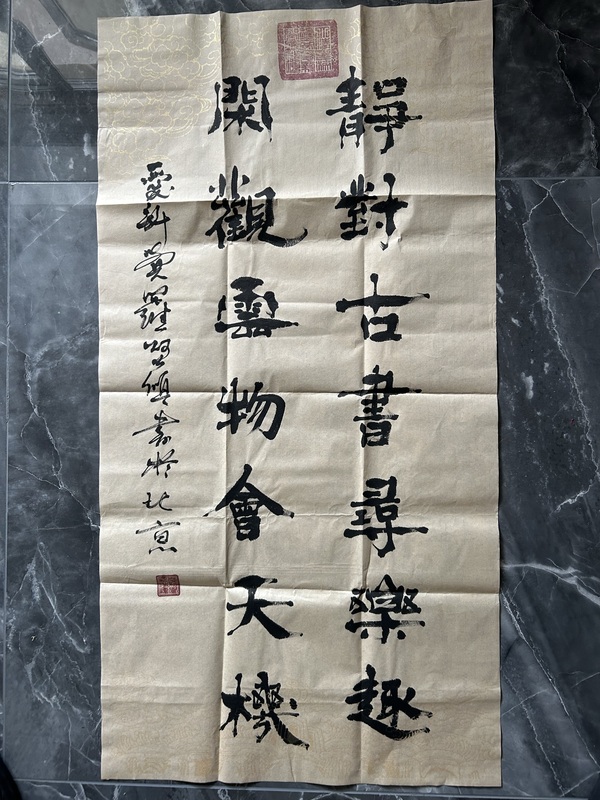 靜對古書尋樂趣
閑觀雲物會天機
愛新覺羅啓傾書於北京